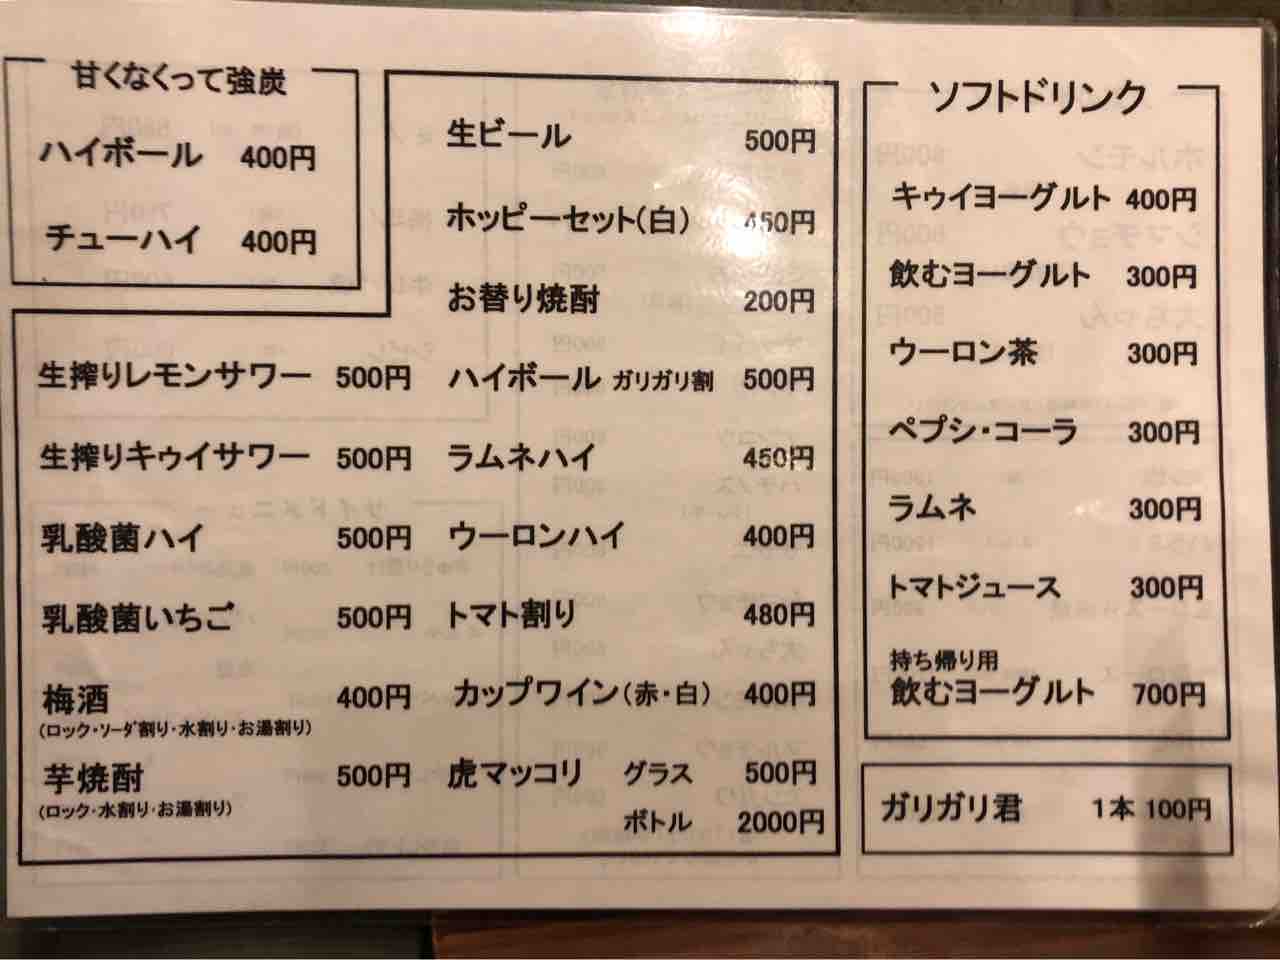 甘くなくって強炭
ハイボール 400円
チューハイ 400円
生搾りレモンサワー 500円
生搾りキゥイサワー 500円
乳酸菌ハイ 500円
乳酸菌いちご 500円
梅酒 400円
(ロック・ソーダ割り・水割り・お湯割り)
芋焼酎 500円
(ロック・水割り・お湯割り)
生ビール 500円
ホッピーセット(白) 450円
お替り焼酎 200円
ハイボール ガリガリ割 500円
ラムネハイ 450円
ウーロンハイ 400円
トマト割り 480円
カップワイン(赤・白) 400円
虎マッコリ グラス 500円
ボトル 2000円
ソフトドリンク
キゥイヨーグルト 400円
飲むヨーグルト 300円
ウーロン茶 300円
ペプシ・コーラ 300円
ラムネ 300円
トマトジュース 300円
持ち帰り用
飲むヨーグルト 700円
ガリガリ君 1本 100円